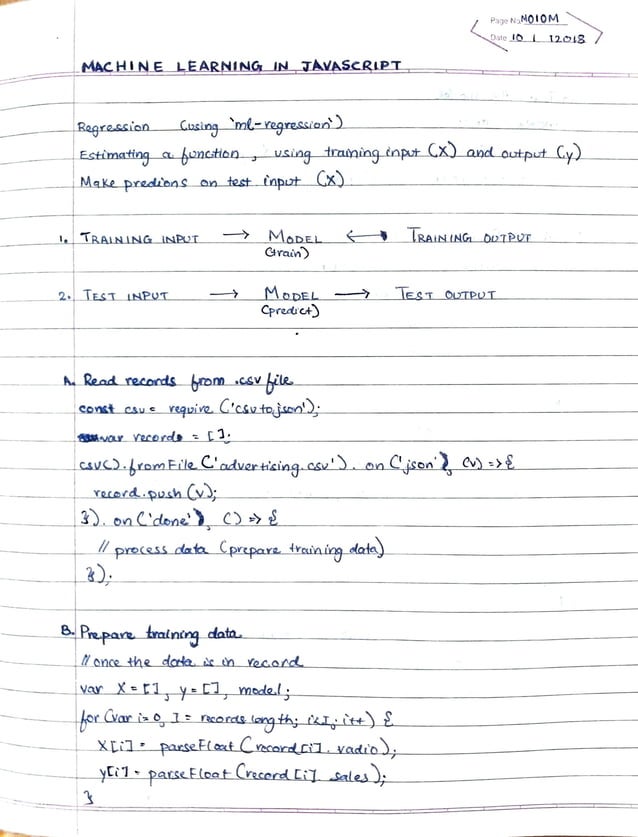 Page No. M010M
Date 10 1 12018
MACHINE LEARNING IN JAVASCRIPT
Regression (using 'ml-regression')
Estimating a function, using training input (X) and output (y)
Make predions on test input (X)
1. TRAINING INPUT → MODEL ← TRAINING OUTPUT
(train)
2. TEST INPUT → MODEL → TEST OUTPUT
(predict)
A. Read records from .csv file
const csv = require ('csvtojson');
var records = [];
csv().fromFile('advertising.csv').on('json', (v) => {
record.push(v);
}).on('done', () => {
// process data (prepare training data)
});
B. Prepare training data
// once the data is in record
var X = [], y = [], model;
for (var i=0, I = records.length; i<I; i++) {
X[i] = parseFloat (record[i].radio);
y[i] = parseFloat (record[i].sales);
}